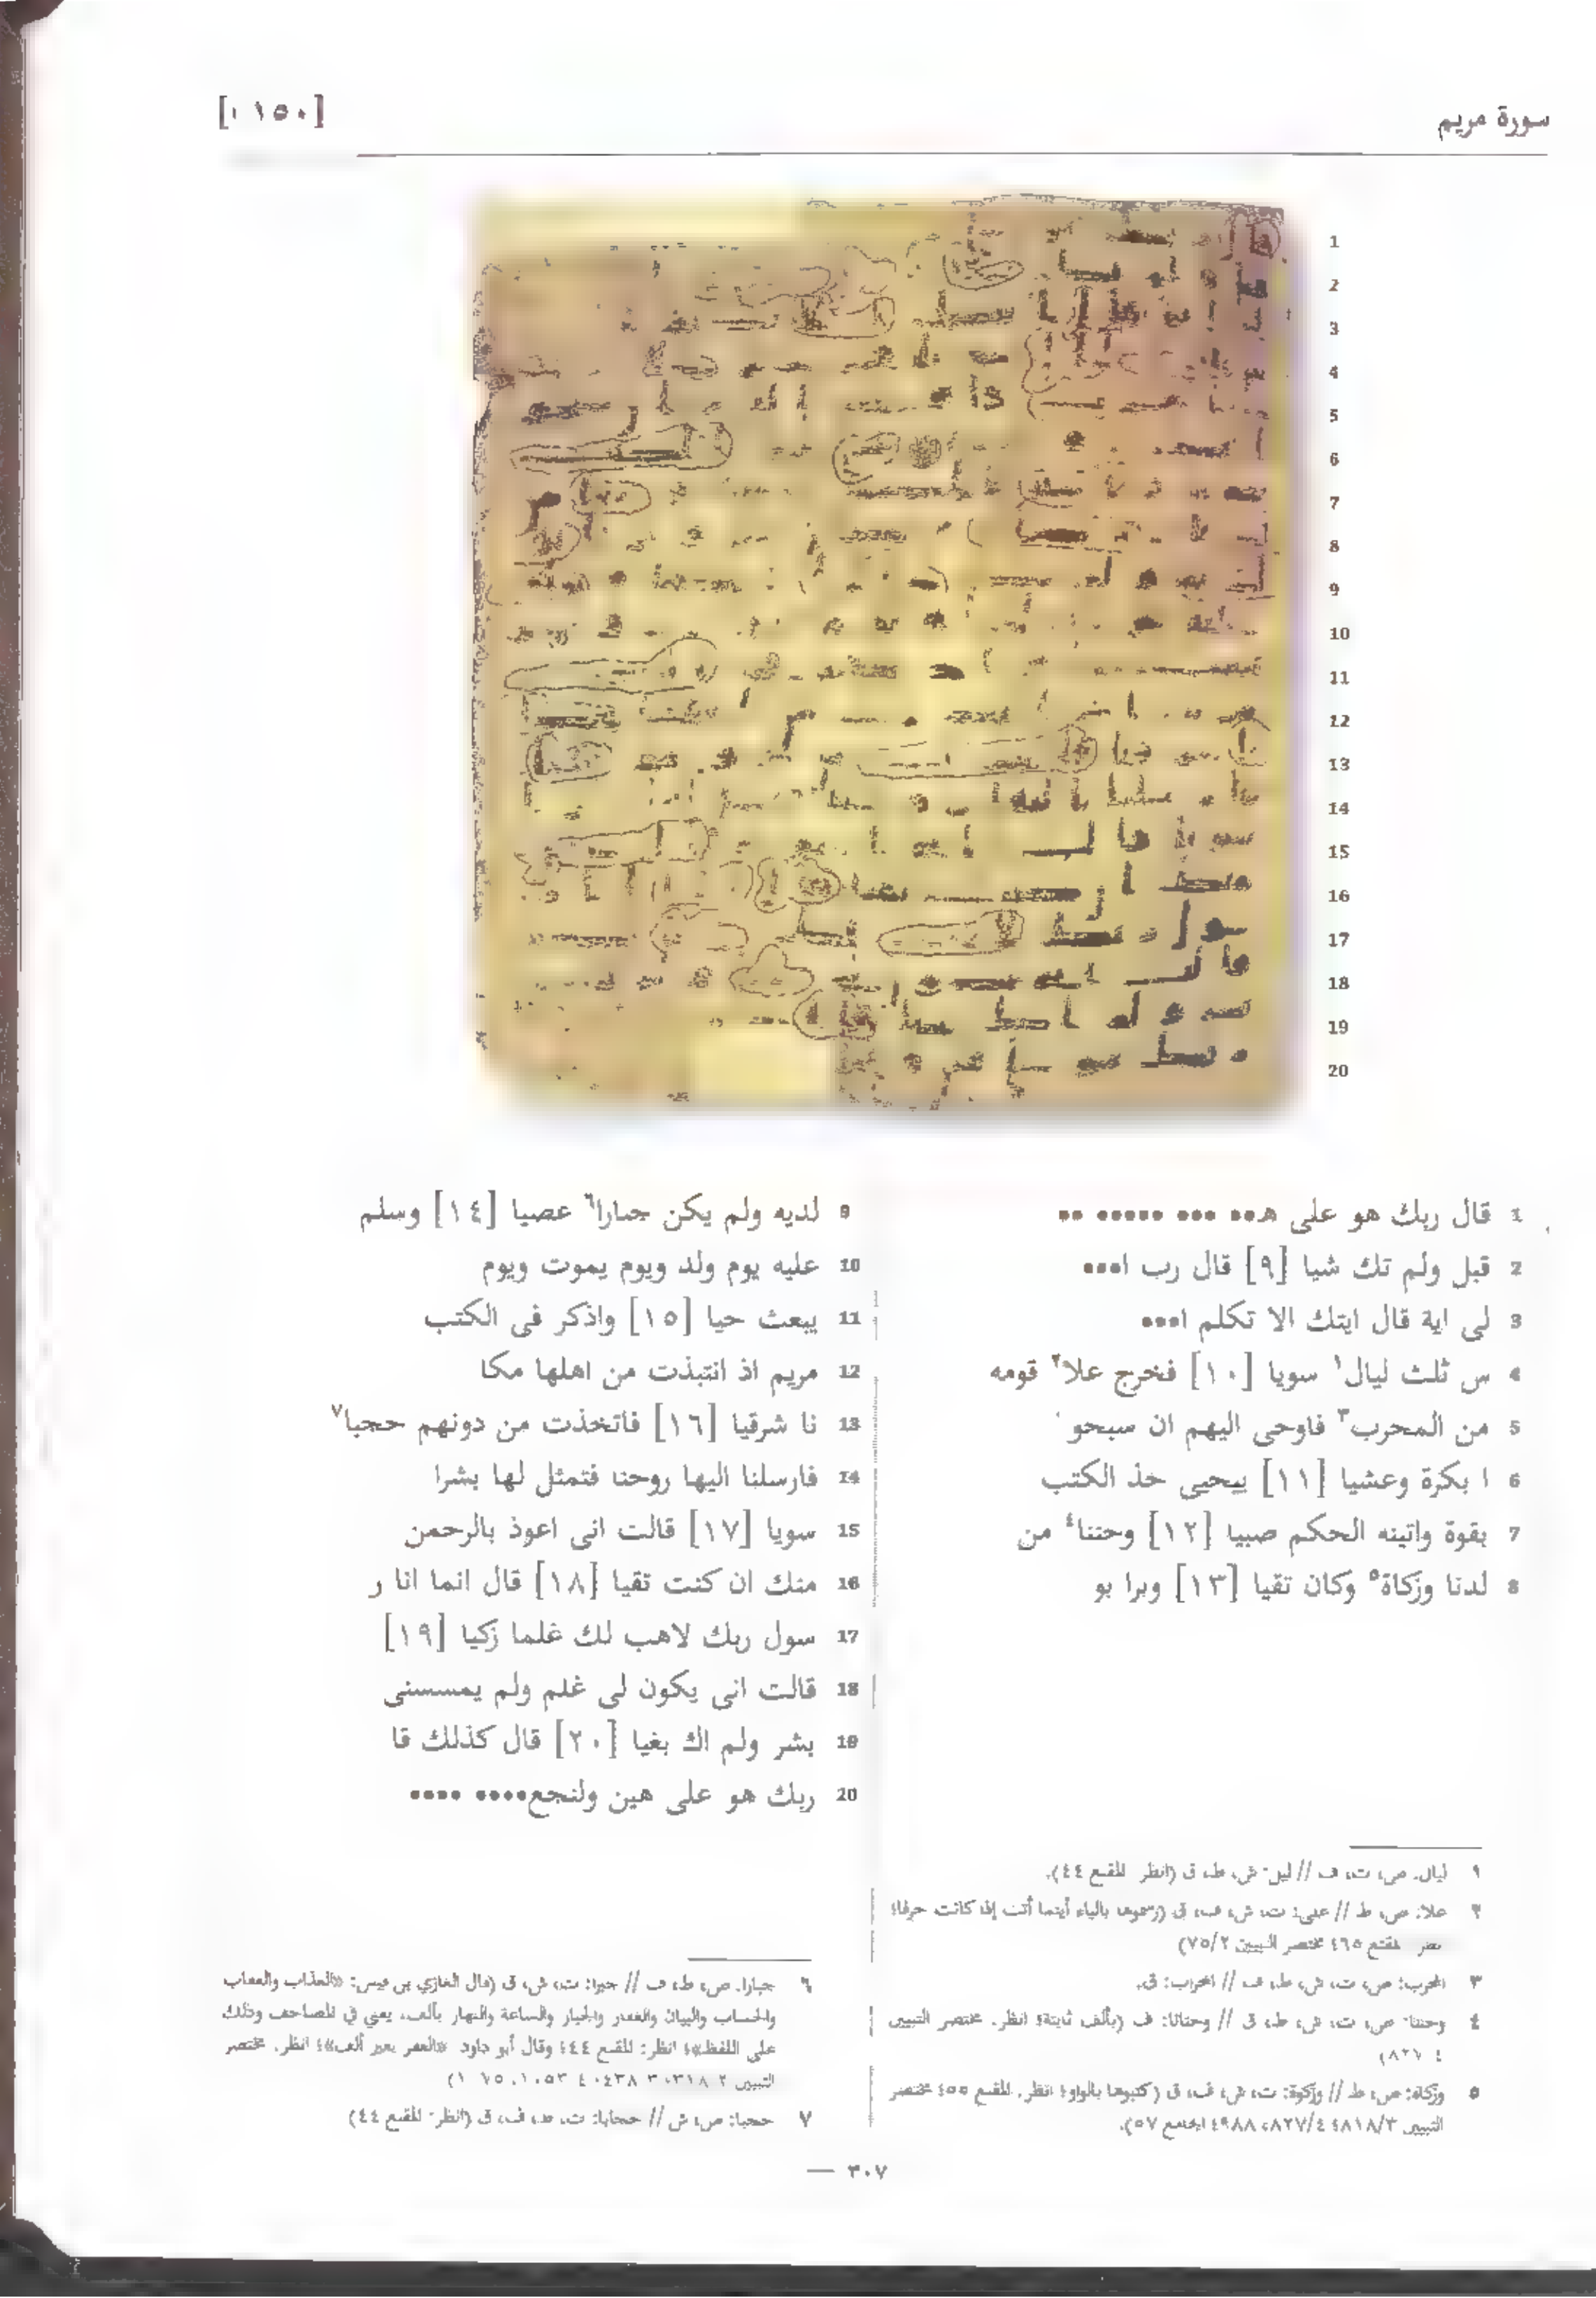 سورة مريم
[١٥٠ ا]
1 قال ربك هو على هـ•• ••• ••••• ••
2 قبل ولم تك شيا [٩] قال رب ا•••
3 لى اية قال ايتك الا تكلم ا•••
4 س ثلث ليال١ سويا [١٠] فخرج علا٢ قومه
5 من المحرب٣ فاوحى اليهم ان سبحو
6 ا بكرة وعشيا [١١] ييحيى خذ الكتب
7 بقوة واتينه الحكم صبيا [١٢] وحننا٤ من
8 لدنا وزكاة٥ وكان تقيا [١٣] وبرا بو
9 لديه ولم يكن جبارا٦ عصيا [١٤] وسلم
10 عليه يوم ولد ويوم يموت ويوم
11 يبعث حيا [١٥] واذكر فى الكتب
12 مريم اذ انتبذت من اهلها مكا
13 نا شرقيا [١٦] فاتخذت من دونهم حجبا٧
14 فارسلنا اليها روحنا فتمثل لها بشرا
15 سويا [١٧] قالت انى اعوذ بالرحمن
16 منك ان كنت تقيا [١٨] قال انما انا ر
17 سول ربك لاهب لك غلما زكيا [١٩]
18 قالت انى يكون لى غلم ولم يمسسنى
19 بشر ولم اك بغيا [٢٠] قال كذلك قا
20 ربك هو على هين ولنجع•••• ••••
١ ليال: ص، ت، ف // ليل: ش، ط، ق (انظر: المقنع ٤٤).
٢ علا: ص، ط // على: ت، ش، ف، ق (رسموها بالياء أينما أتت إذا كانت حرفا؛
المقنع ٤٦٥ مختصر التبيين ٧٥/٢)
٣ المحرب: ص، ت، ش، ط، ف // المحراب: ق.
٤ وحننا: ص، ت، ش، ط، ق // وحنانا: ف (بألف ثابتة؛ انظر: مختصر التبيين
٤ ٨٢٧)
٥ وزكاة: ص، ط // وزكوة: ت، ش، ف، ق (كتبوها بالواو؛ انظر: المقنع ٤٥٥ مختصر
التبيين الجامع ٥٧).
٦ جبارا: ص، ط، ف // جبرا: ت، ش، ق (قال الغازي بن قيس: «العذاب والعقاب
والحساب والبيان والغفار والجبار والساعة والنهار بألف، يعني في المصاحف وذلك
على اللفظ»؛ انظر: المقنع ٤٤٤ وقال أبو داود انظر: مختصر
التبيين
٧ حجبا: ص، ش // حجابا: ت، ط، ف، ق (انظر: المقنع ٤٤)
— ٣٠٧